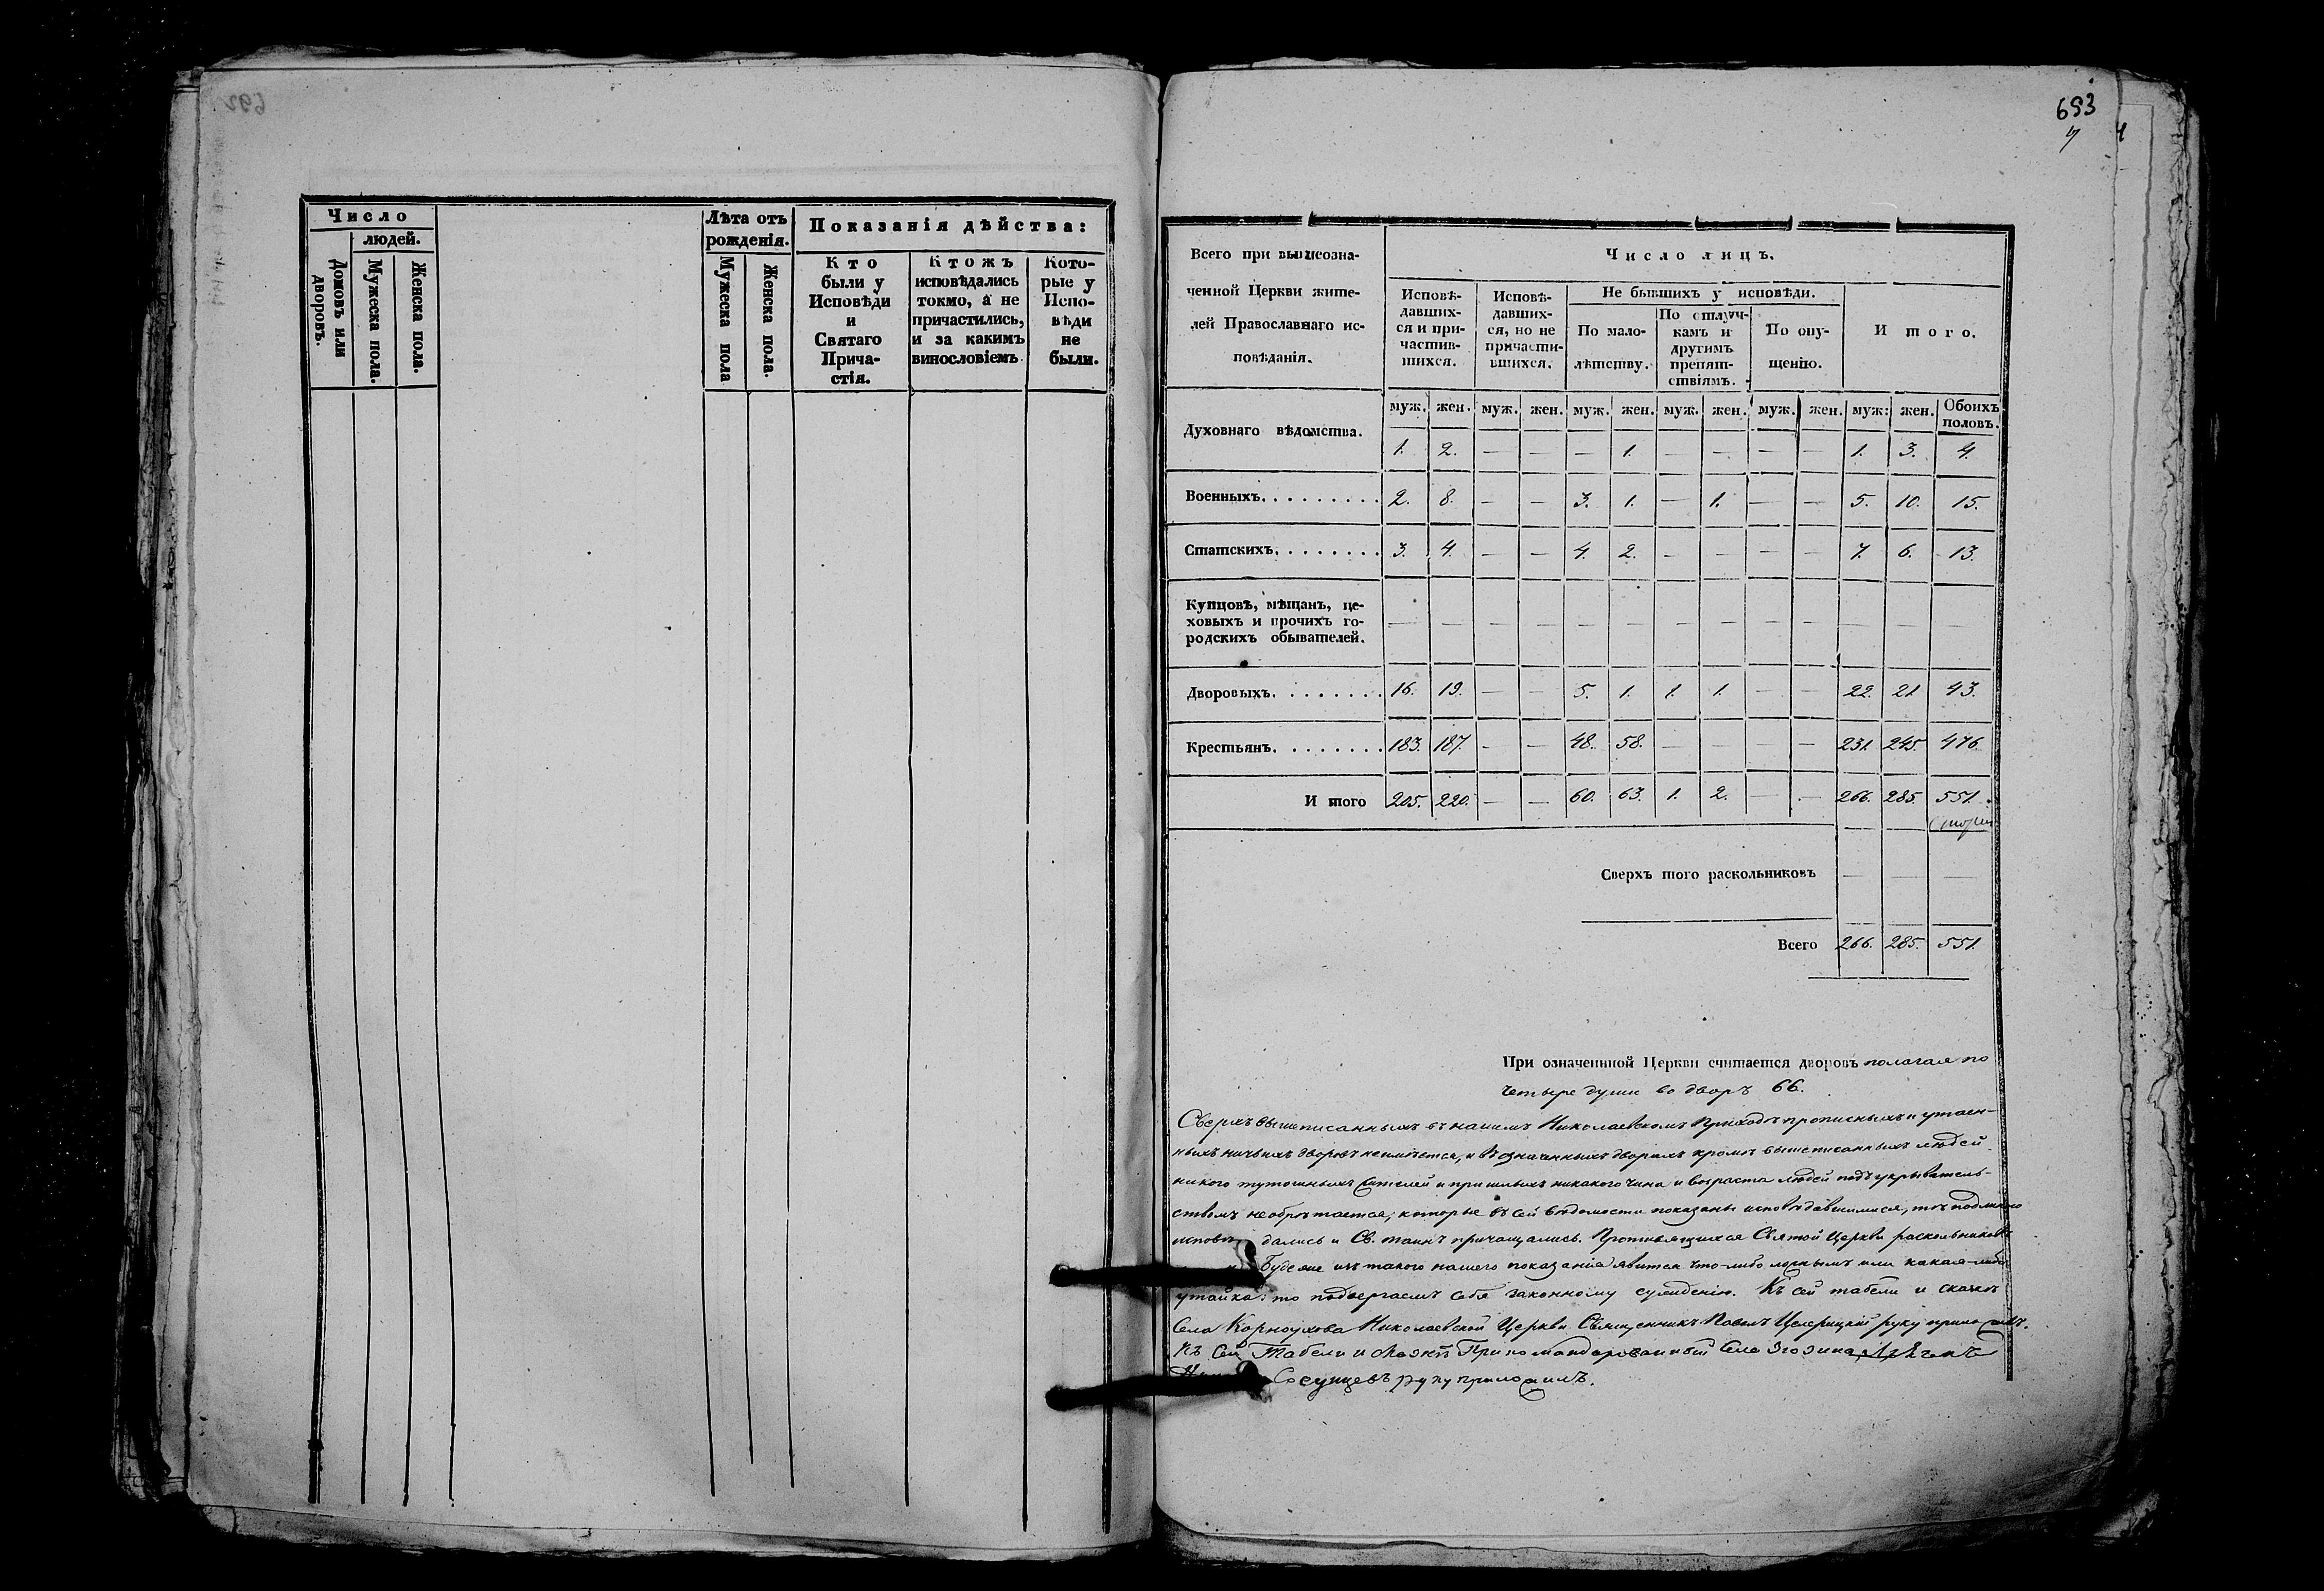 693
Число
людей.
Домовъ или дворовъ.
Мужеска пола.
Женска пола.
Лѣта отъ рожденія.
Мужеска пола
Женска пола.
Показанія дѣйства:
Кто
были у
Исповѣди
и
Святаго
Прича-
стія.
Ктожъ
исповѣдались
токмо, а не
причастились,
и за какимъ
винословіемъ
Кото-
рые у
Испо-
вѣди
не
были.
Всего при вышеозна-
ченной Церкви жите-
лей Православнаго ис-
повѣданія.
Число лицъ.
Исповѣ-
давших-
ся и при-
частив-
шихся.
Исповѣ-
давших-
ся, но не
причасти-
вшихся.
Не бывшихъ у исповѣди.
По мало-
лѣтству.
По отлуч-
камъ и
другимъ
препят-
ствіямъ.
По опу-
щенію.
И того.
муж. жен. муж. жен. муж. жен. муж. жен. муж. жен. муж: жен. Обоихъ половъ.
Духовнаго вѣдомства. 1. 2. — — — 1. — — — — 1. 3. 4.
Военныхъ......... 2. 8. — — 3. 1. — 1. — — 5. 10. 15.
Статскихъ........ 3. 4. — — 4. 2. — — — — 7. 6. 13.
Купцовъ, мѣщанъ, це-
ховыхъ и прочихъ го-
родскихъ обывателей. — — — — — — — — — — — — —
Дворовыхъ........ 16. 19. — — 5. 1. 1. 1. — — 22. 21 43.
Крестьянъ........ 183. 187. — — 48. 58. — — — — 231. 245. 476.
И того 205. 220. — — 60. 63. 1. 2. — — 266. 285. 551.
Сверхъ того раскольниковъ — — —
Всего 266. 285. 551.
При означенной Церкви считается дворовъ полагая по
четыре души во дворъ 66.
Сверхъ вышеписанныхъ въ нашемъ Николаевскомъ Приходѣ прописныхъ и утаен-
ныхъ ничьихъ дворовъ неимѣется, и в означенныхъ дворахъ кромѣ вышеписанныхъ людей
никого тутошныхъ жителей и пришлыхъ никакого чина и возраста людей подъ укрыватель-
ствомъ необрѣтается; которые въ сей вѣдомости показаны исповѣдавшимися, тѣ подлинно
исповѣдались и Св. таинъ причащались. Противящихся Святой Церкви раскольниковъ
Буде же изъ такого нашего показанія явится что-либо ложнымъ или какая-либо
утайка: то подвергаемъ себя законному сужденію. Къ сей табели и сказкѣ
Села Корноухова Николаевской Церкви Священникъ Павелъ руку приложилъ.
Къ сей Табели и Прикомандированный Села
руку приложилъ.